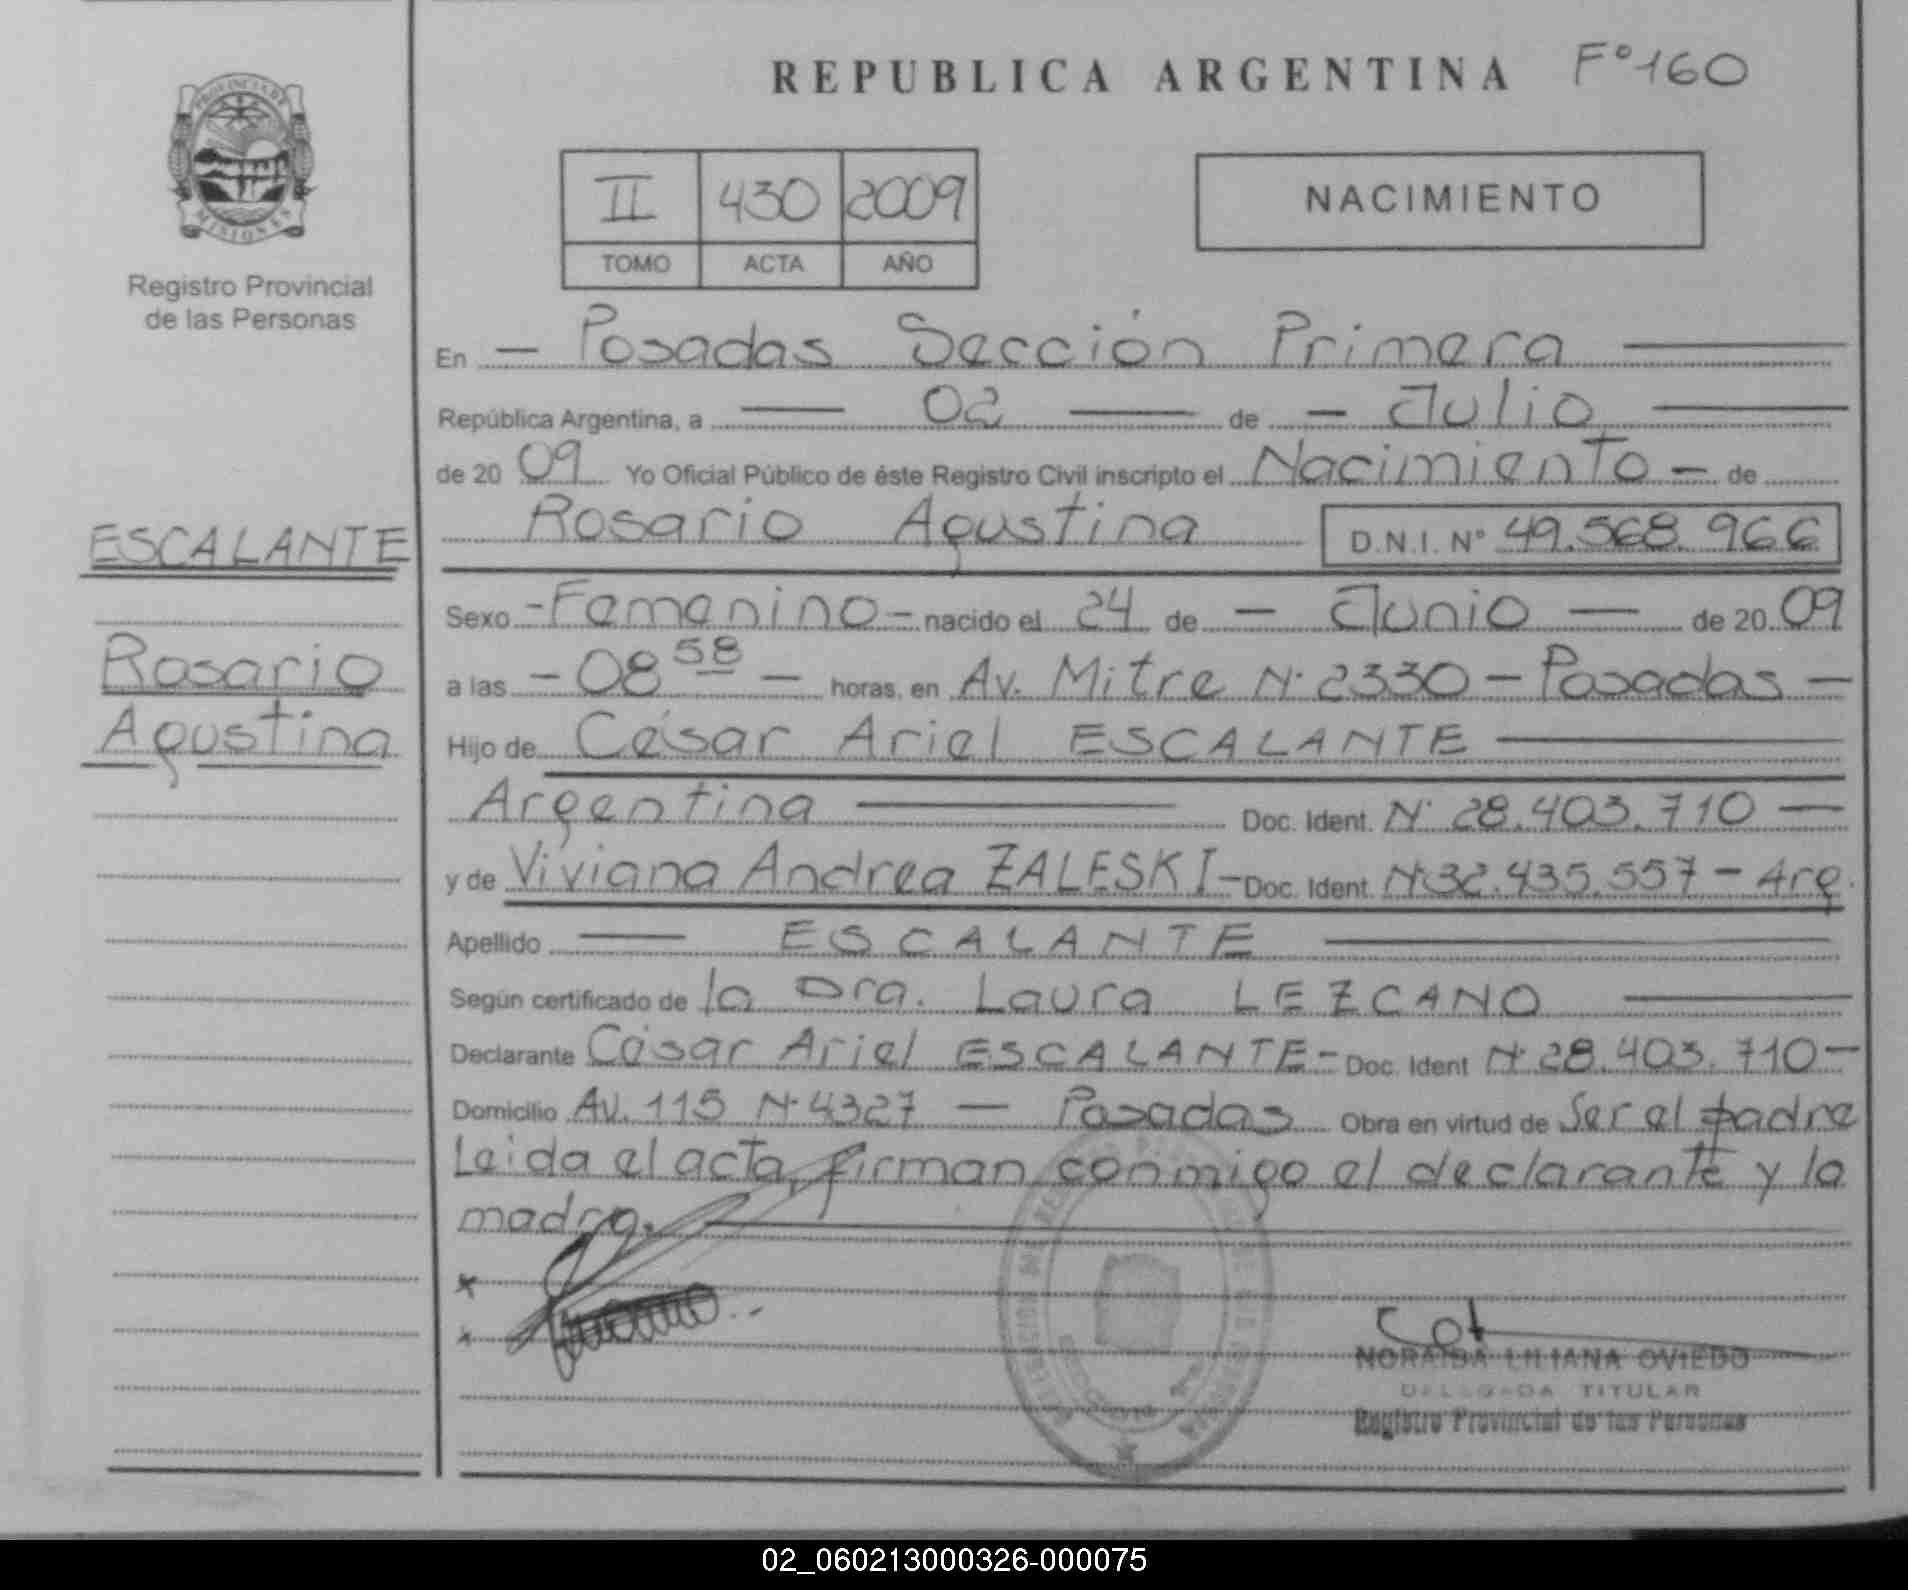 REPUBLICA ARGENTINA Fº 160
PROVINCIA DE
MISIONES
Registro Provincial
de las Personas
II 430 2009
TOMO ACTA AÑO
NACIMIENTO
En - Posadas Sección Primera
República Argentina, a 02 de - Julio
de 20 09 Yo Oficial Público de éste Registro Civil inscripto el Nacimiento - de
Rosario Agustina D.N.I. Nº 49.568.966
ESCALANTE
Rosario
Agustina
Sexo - Femenino - nacido el 24 de - Junio - de 20 09
a las - 08 58 - horas, en Av. Mitre Nº 2330 - Posadas -
Hijo de César Ariel ESCALANTE
Argentina Doc. Ident. Nº 28.403.710 -
y de Viviana Andrea ZALESKI - Doc. Ident. Nº 32.435.557 - Arg.
Apellido - ESCALANTE
Según certificado de la Dra. Laura LEZCANO
Declarante César Ariel ESCALANTE - Doc. Ident Nº 28.403.710 -
Domicilio Av. 115 Nº 4327 - Posadas Obra en virtud de Ser el padre
Leida el acta, firman conmigo el declarante y la
madre.
NORAIDA LILIANA OVIEDO
DELEGADA TITULAR
Registro Provincial de las Personas
02_060213000326-000075